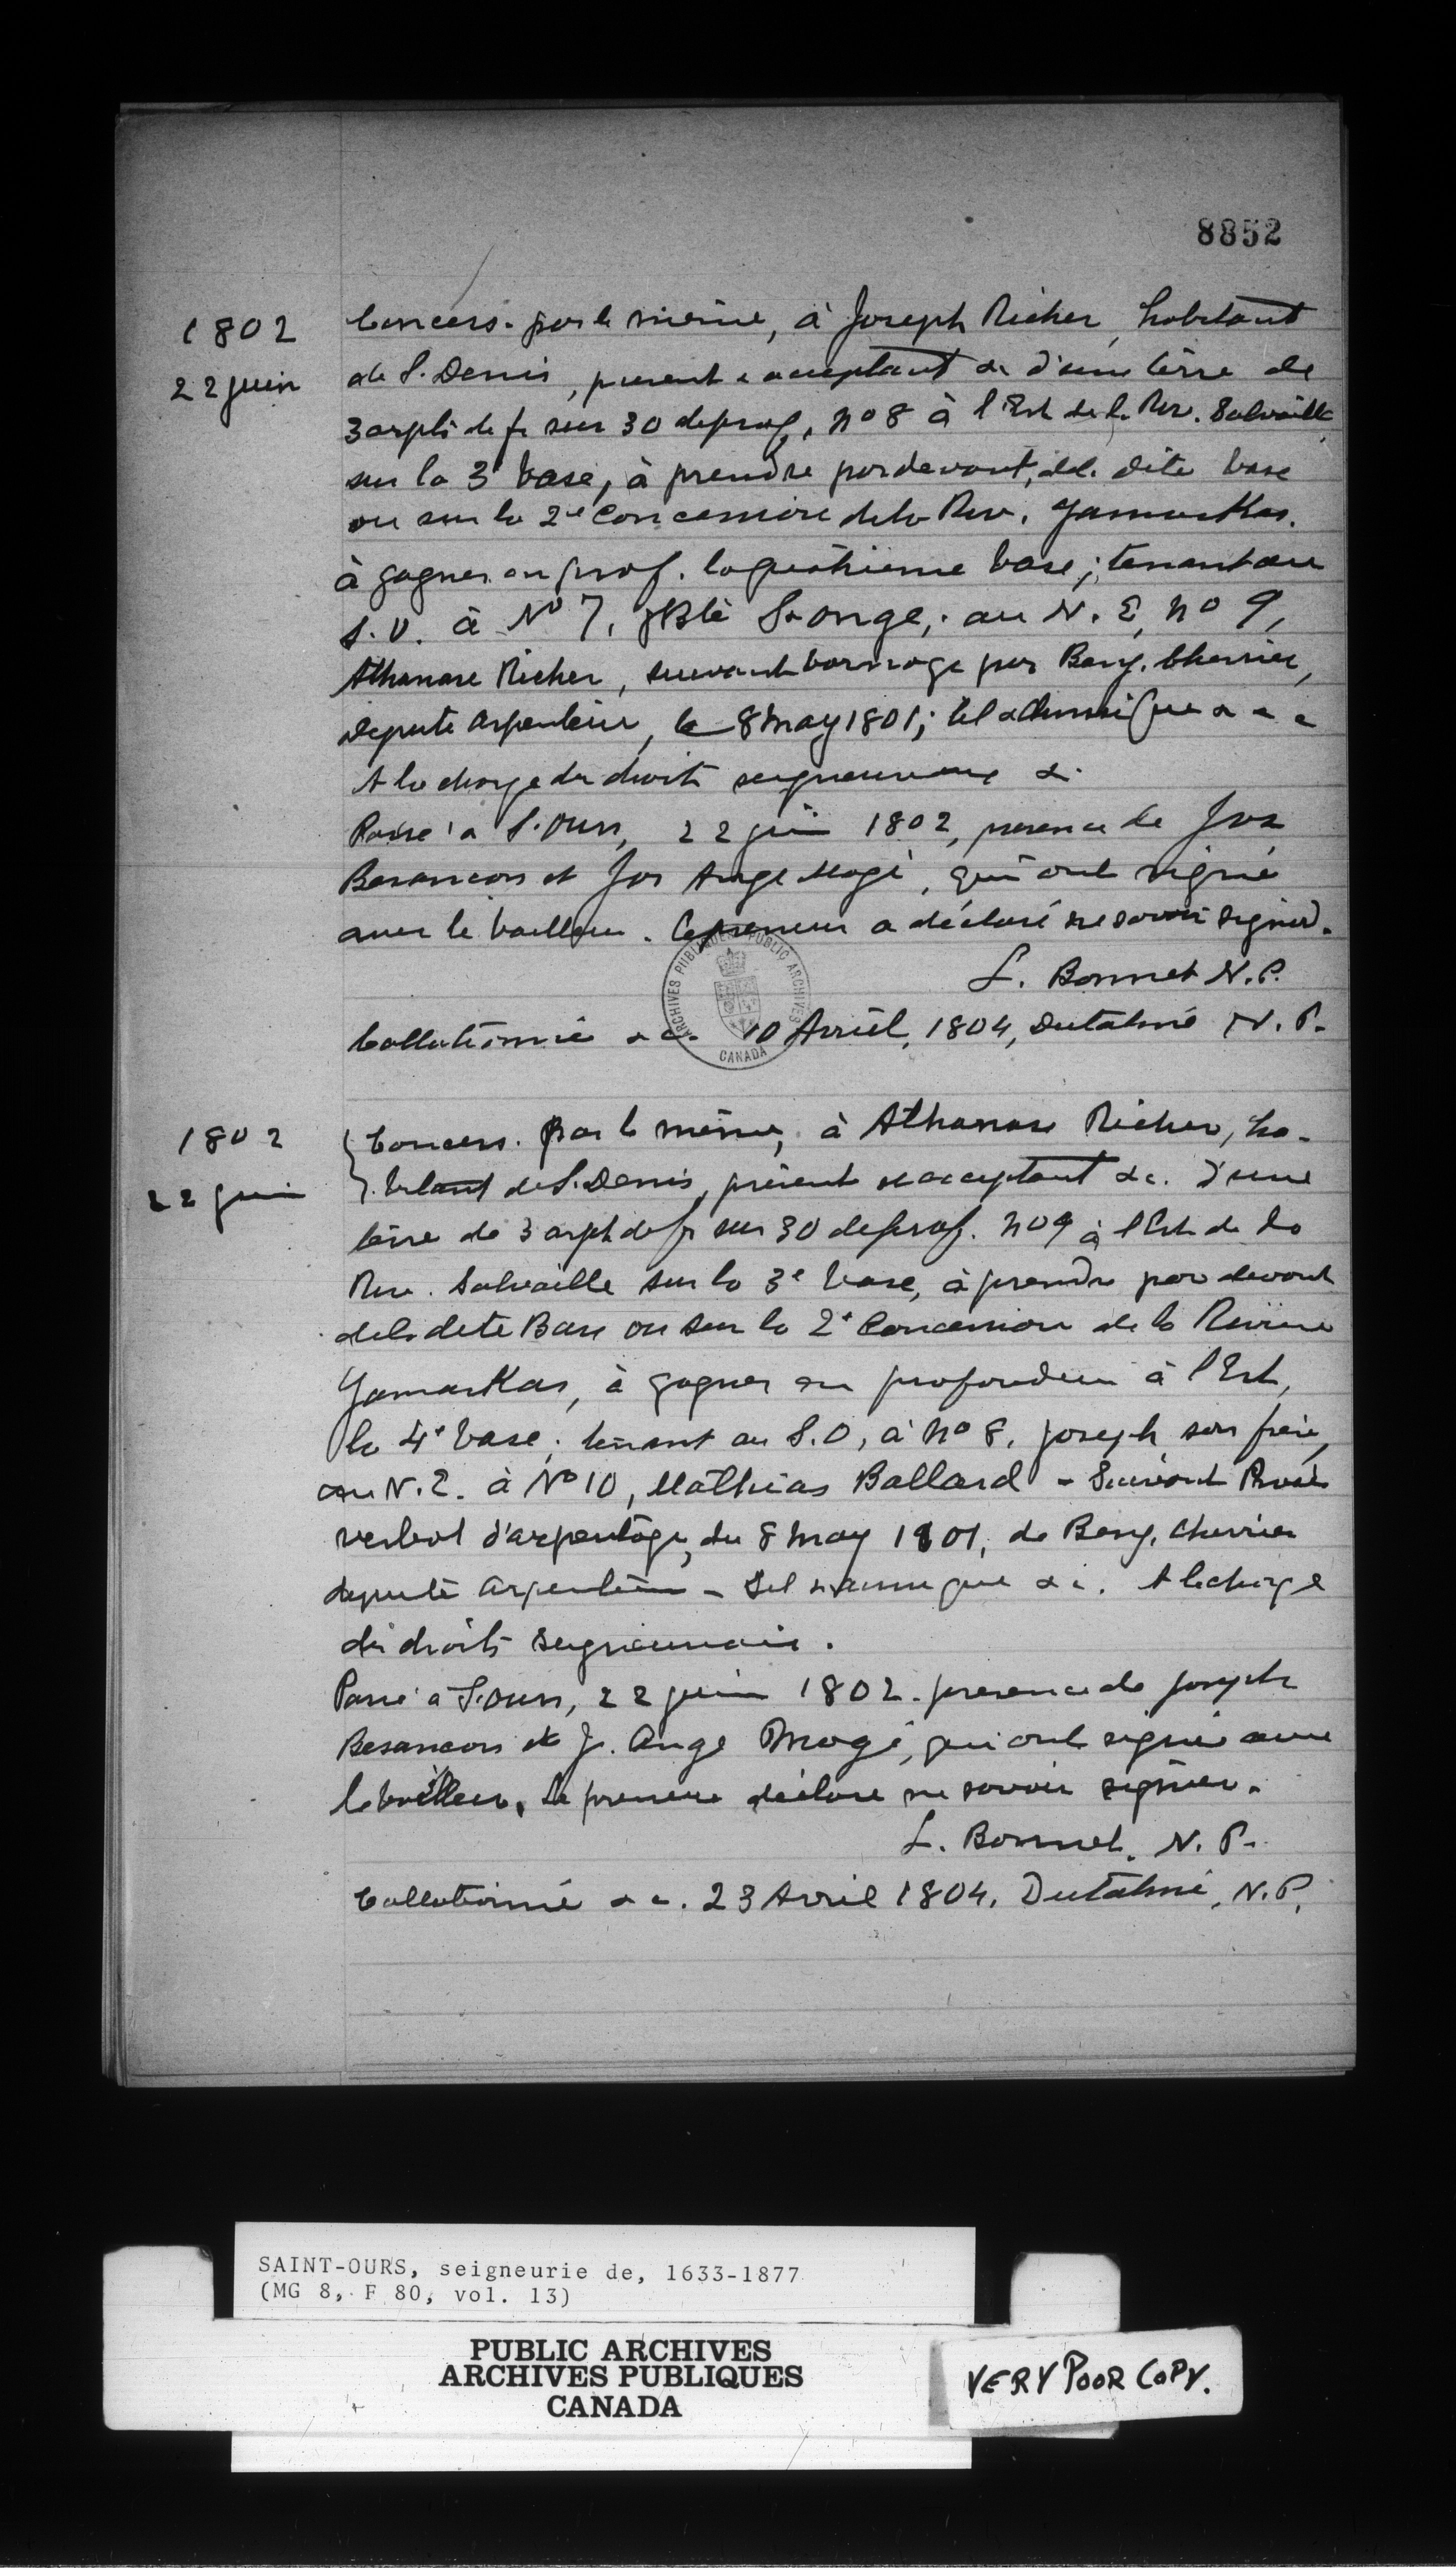 8852
1802
22 juin
Concess. par le même, à Joseph Richer, habitant
de S. Denis, présent & acceptant &c d'une terre de
3 arpts de fr sur 30 de prof, no 8 à l'Est de la Riv. Salvaille
sur la 3e base, à prendre par devant, de la dite base
ou sur la 2e Concession de la Riv. Yamaskas.
à gagner en prof. la quatrième base; tenant au
S.O. à No 7, JBte St-onge, au N.E, no 9,
Athanase Richer, suivant bornage par Benj. Cherrier,
député arpenteur, le 8 may 1801; tel & ainsi que &c
A la charge des droits seigneuriaux &
Passé à S. Ours, 22 juin 1802, presence de Jos
Besancon et Jos Ange Magé, qui ont signé
avec le bailleur. Le preneur a déclaré ne savoir signer.
L. Bonnet N.P.
Collationné &c. 10 Avril, 1804, Dutalmé N.P.
ARCHIVES PUBLIQUES PUBLIC ARCHIVES
CANADA
1802
22 juin
Concess. Par le même, à Athanase Richer, ha-
bitant de S. Denis, présent & acceptant &c. d'une
terre de 3 arpt de fr sur 30 de prof. no 9 à l'Est de la
Riv. Salvaille sur la 3e base, à prendre par devant
de la dite Base ou sur la 2e Concession de la Rivière
Yamaskas, à gagner en profondeur à l'Est,
la 4e base; tenant au S.O, à no 8, joseph son frère,
au N.E. à No 10, Mathias Ballard - Suivant Procès
verbal d'arpentage, du 8 may 1801, de Benj. Cherrier
député arpenteur - Tel & ainsi que &c. A la charge
des droits seigneuriaux.
Passé à S. Ours, 22 juin 1802. presence de joseph
Besancon et J. Ange Magé, qui ont signé avec
le bailleur. Le preneur déclare ne savoir signer.
L. Bonnet. N.P.
Collationné &c. 23 Avril 1804. Dutalmé, N.P.
SAINT-OURS, seigneurie de, 1633-1877
(MG 8, F 80, vol. 13)
PUBLIC ARCHIVES
ARCHIVES PUBLIQUES
CANADA
VERY POOR COPY.